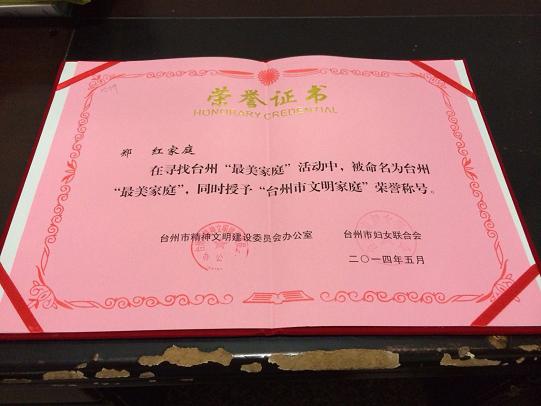 荣誉证书
HONORARY CREDENTIAL
郑 红家庭
在寻找台州“最美家庭”活动中，被命名为台州
“最美家庭”，同时授予“台州市文明家庭”荣誉称号。
台州市精神文明建设委员会办公室 台州市妇女联合会
二〇一四年五月